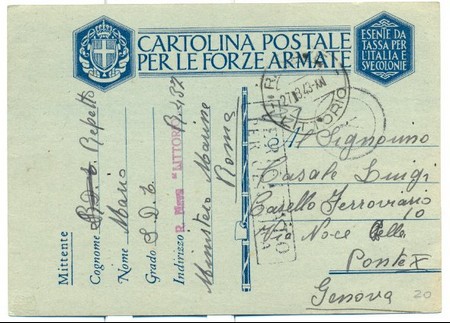 CARTOLINA POSTALE
PER LE FORZE ARMATE
ESENTE DA
TASSA PER
L'ITALIA E
SVE COLONIE
Mittente
Cognome Repetto
Nome Mario
Grado S.D.T.
Indirizzo R. Nave "LITTORIO"
Ministero Marina
Roma
Signorino
Casale Luigi
Casello Ferroviario
Via Noce
Pontex
Genova
20